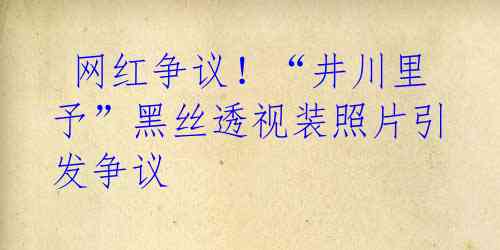 网红争议！“井川里
予”黑丝透视装照片引
发争议